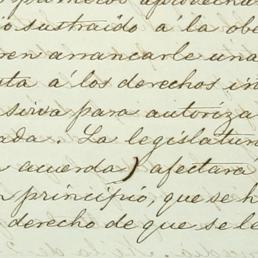 sustraido á la obe
ren arrancarle una
ta á los derechos in
sirva para autoriza
ada. La legislatur
acuerda) afectará
principio, que se h
derecho de que se le